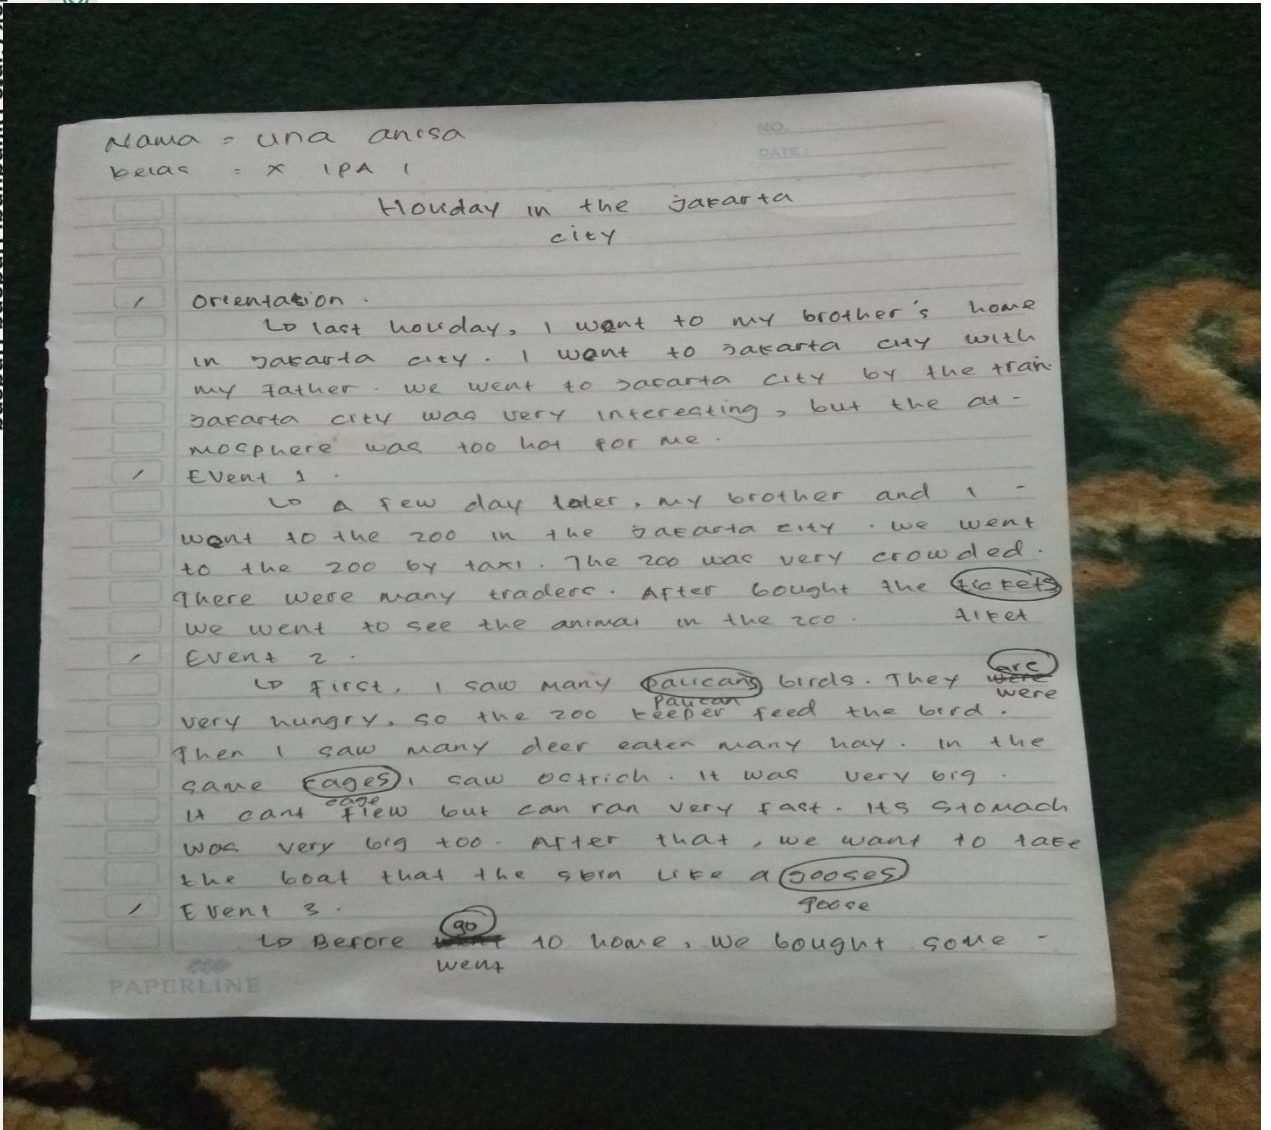 Nama = una anisa
kelas = X IPA 1
NO.
DATE:
Holiday in the jakarta
city
Orientation.
last holiday, I went to my brother's home
in jakarta city. I went to jakarta city with
my father. we went to jakarta city by the train.
jakarta city was very interesting, but the at-
mosphere was too hot for me.
Event 1.
a few day later, my brother and I -
went to the zoo in the jakarta city. we went
to the zoo by taxi. The zoo was very crowded.
There were many traders. After bought the tickets
tiket
we went to see the animal in the zoo.
Event 2.
are
First, I saw many palicans birds. They were
palican
were
very hungry, so the zoo keeper feed the bird.
Then I saw many deer eaten many hay. in the
same cages I saw ostrich. It was very big.
cage
it cant flew but can ran very fast. Its stomach
was very big too. After that, we want to take
the boat that the skin like a gooses
goose
Event 3.
go
Before went to home, we bought some -
went
PAPERLINE